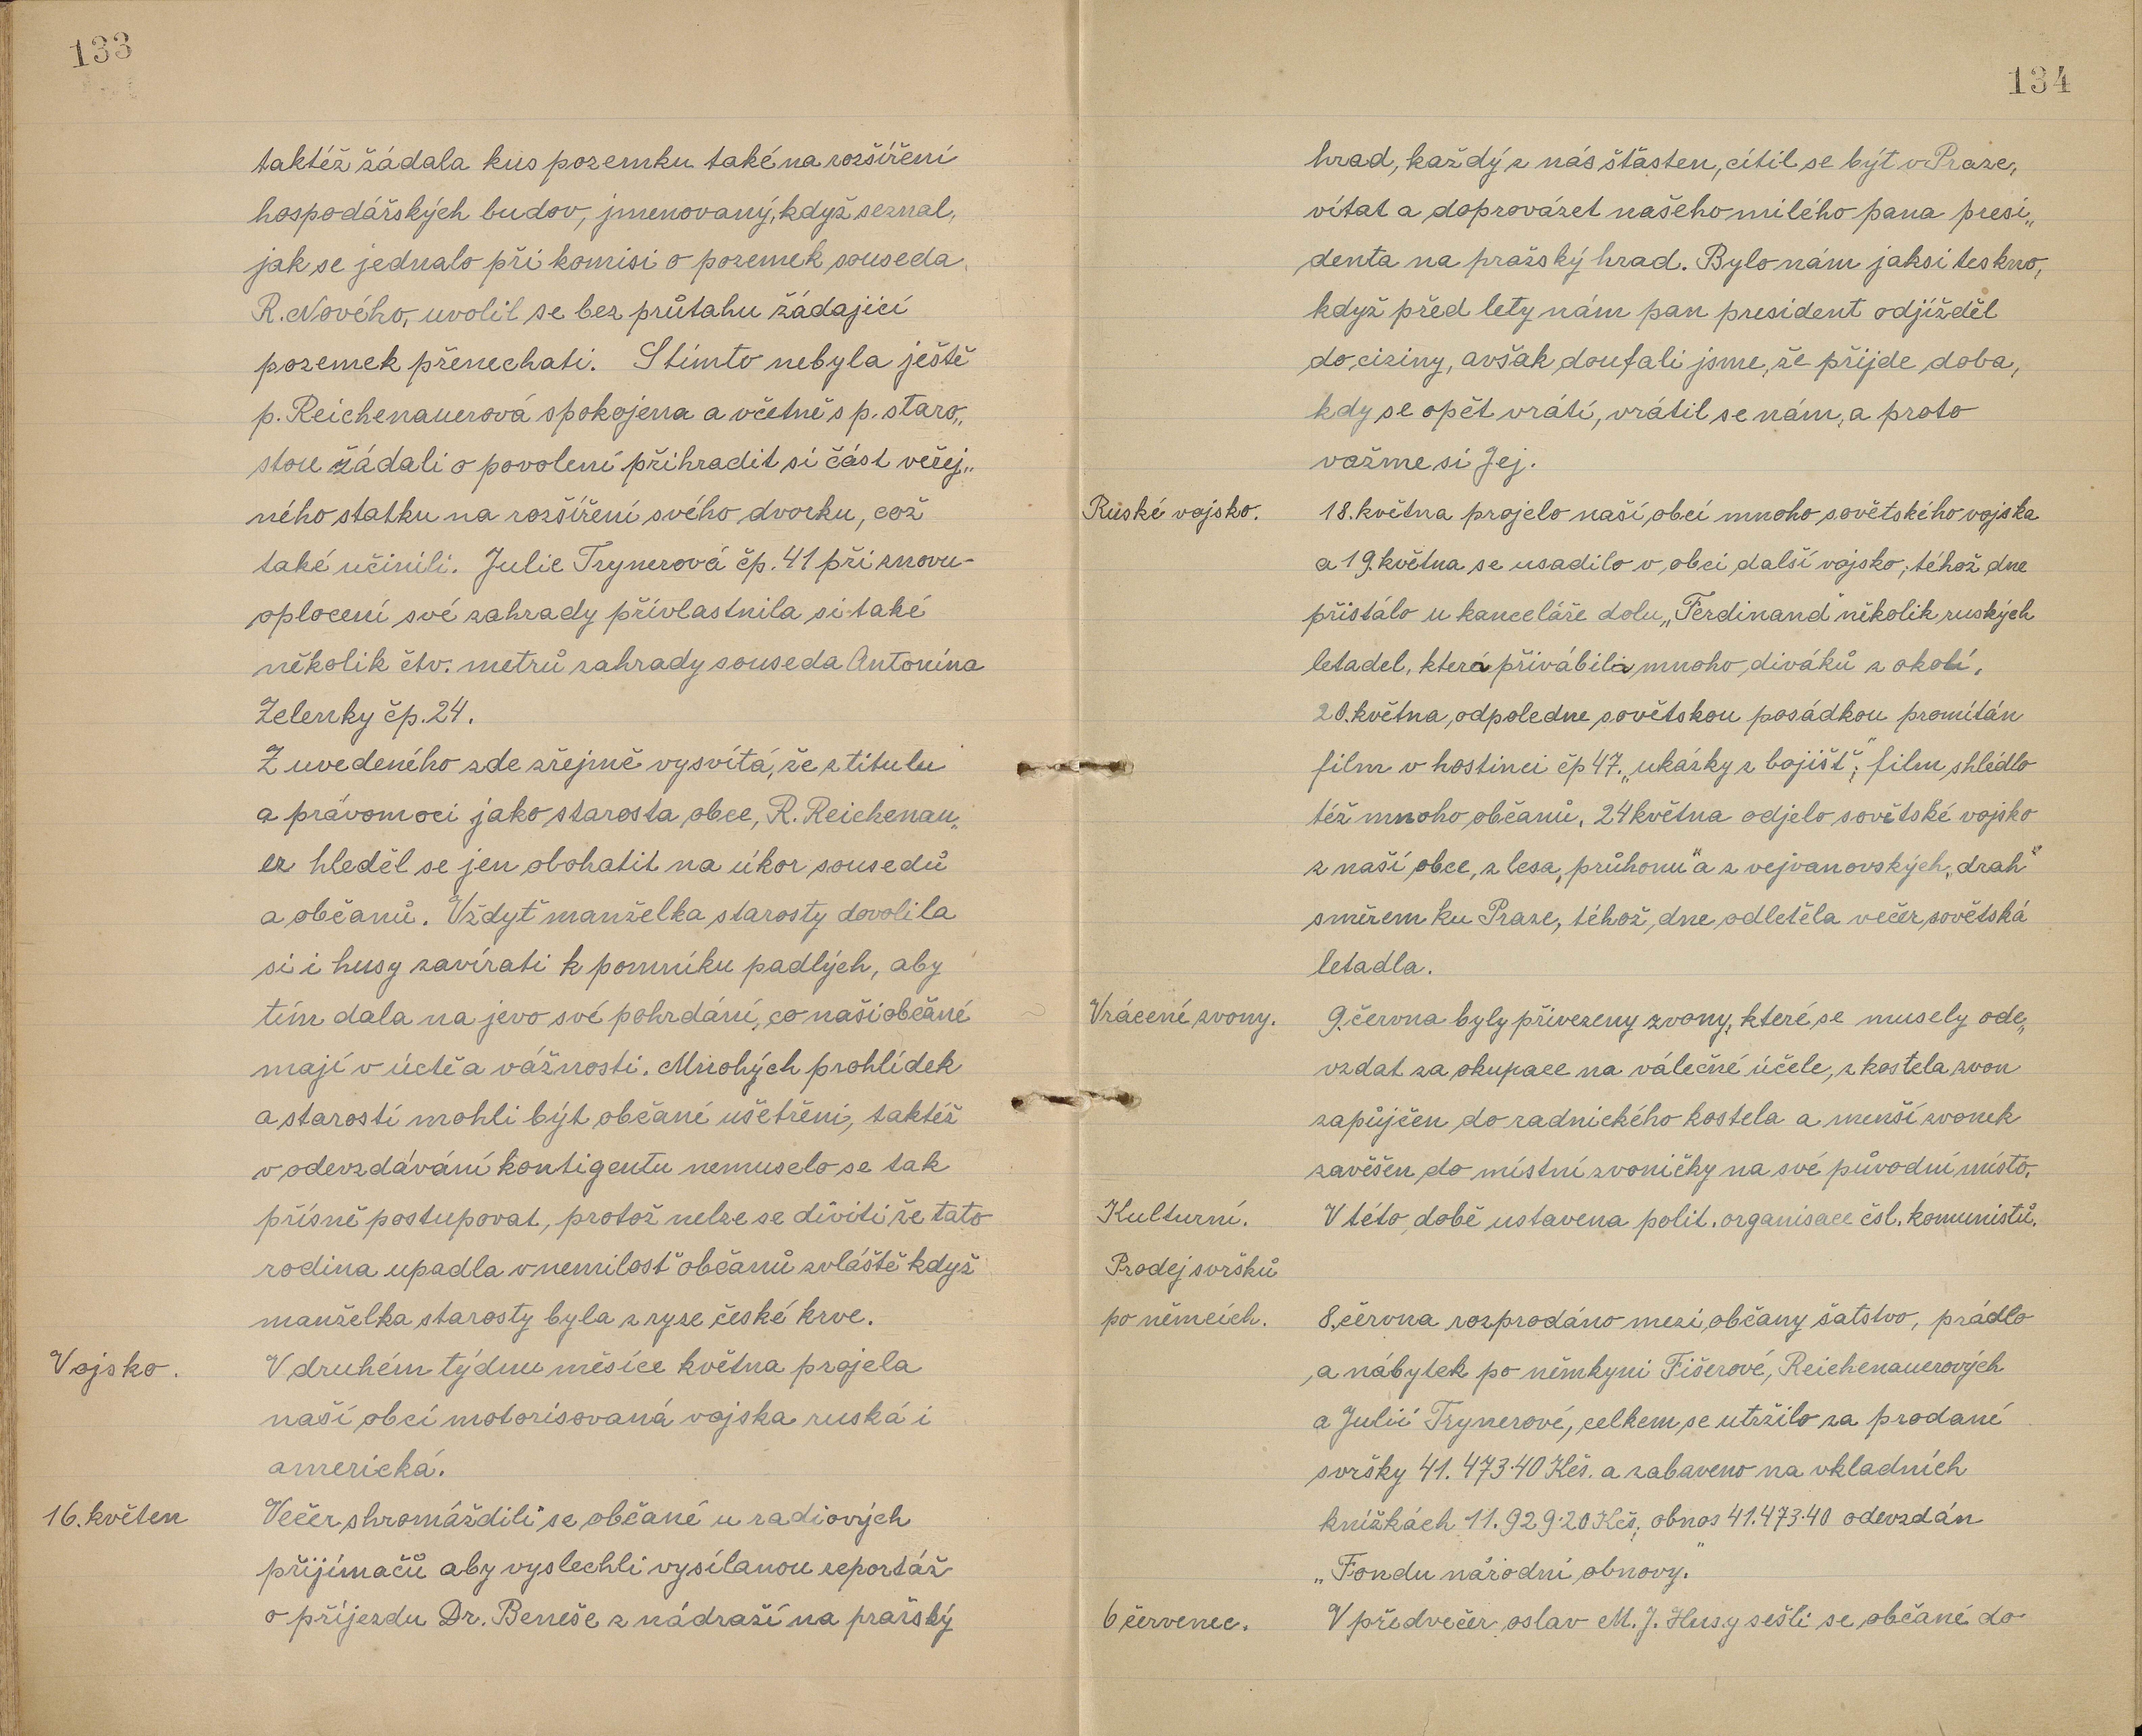 133
taktéž žádala kus pozemku také na rozšíření
hospodářských budov, jmenovaný, když seznal,
jak se jednalo při komisi o pozemek souseda
R. Nového, uvolil se bez průtahu žádající
pozemek přenechati. S tímto nebyla ještě
p. Reichenauerová spokojena a včetně s p. staro„
stou žádali o povolení přihradit si část veřej„
ného statku na rozšíření svého dvorku, což
také učinili. Julie Trynerová čp. 41 při znovu-
oplocení své zahrady přívlastnila si také
několik čtv. metrů zahrady souseda Antonína
Zelenky čp. 24.
Z uvedeného zde zřejmě vysvítá, že z titulu
a právomoci jako starosta obce, R. Reichenau„
er hleděl se jen obohatit na úkor sousedů
a občanů. Vždyť manželka starosty dovolila
si i husy zavírati k pomníku padlých, aby
tím dala na jevo své pohrdání, co naši občané
mají v úctě a vážnosti. Mnohých prohlídek
a starostí mohli být občané ušetřeni, taktéž
v odevzdávání kontigentu nemuselo se tak
přísně postupovat, protož nelze se diviti že tato
rodina upadla v nemilosť občanů zvláště když
manželka starosty byla z ryze české krve.
Vojsko. V druhém týdnu měsíce května projela
naší obcí motorisovaná vojska ruská i
americká.
16. květen Večer shromáždili se občané u radiových
přijímačů aby vyslechli vysílanou reportáž
o příjezdu Dr. Beneše z nádraží na pražský
134
hrad, každý z nás šťasten, cítil se být v Praze,
vítat a doprovázet našeho milého pana presi„
denta na pražský hrad. Bylo nám jaksi teskno,
když před lety nám pan president odjížděl
do ciziny, avšak doufali jsme, že přijde doba,
kdy se opět vrátí, vrátil se nám, a proto
važme si Jej.
Ruské vojsko. 18. května projelo naší obcí mnoho sovětského vojska
a 19. května se usadilo v obci další vojsko, téhož dne
přistálo u kanceláře dolu „Ferdinand" několik ruských
letadel, která přivábila mnoho diváků z okolí.
20. května, odpoledne sovětskou posádkou promítán
film v hostinci čp 47. „ukázky z bojišť", film shlédlo
též mnoho občanů. 24 května odjelo sovětské vojsko
z naší obce, z lesa „průhonu" a z vejvanovských „drah"
směrem ku Praze, téhož dne odletěla večer sovětská
letadla.
Vrácené zvony. 9. června byly přivezeny zvony, které se musely ode„
vzdat za okupace na válečné účele, z kostela zvon
zapůjčen do radnického kostela a menší zvonek
zavěšen do místní zvoničky na své původní místo.
Kulturní. V této době ustavena polit. organisace čsl. komunistů.
Prodej svršků
po němcích. 8. června rozprodáno mezi občany šatstvo, prádlo
a nábytek po němkyni Fišerové, Reichenauerových
a Julii Trynerové, celkem se utržilo za prodané
svršky 41.473·40 Kčs. a zabaveno na vkladních
knížkách 11.929·20 Kčs, obnos 41.473·40 odevzdán
„Fondu národní obnovy."
6 červenec. V předvečer oslav M. J. Husy sešli se občané do